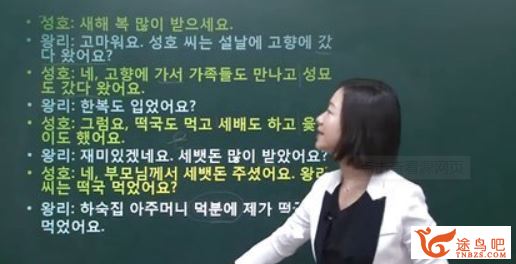 성호: 새해 복 많이 받으세요.
왕리: 고마워요. 성호 씨는 설날에 고향에 갔
다 왔어요?
성호: 네, 고향에 가서 가족들도 만나고 성묘
도 갔다 왔어요.
왕리: 한복도 입었어요?
성호: 그럼요, 떡국도 먹고 세배도 하고 윷
이도 했어요.
왕리: 재미있겠네요. 세뱃돈 많이 받았어요?
성호: 네, 부모님께서 세뱃돈 주셨어요. 왕리
씨는 떡국 먹었어요?
왕리: 하숙집 아주머니 덕분에 제가 떡국
먹었어요.
途鸟吧
TNBZS.COM